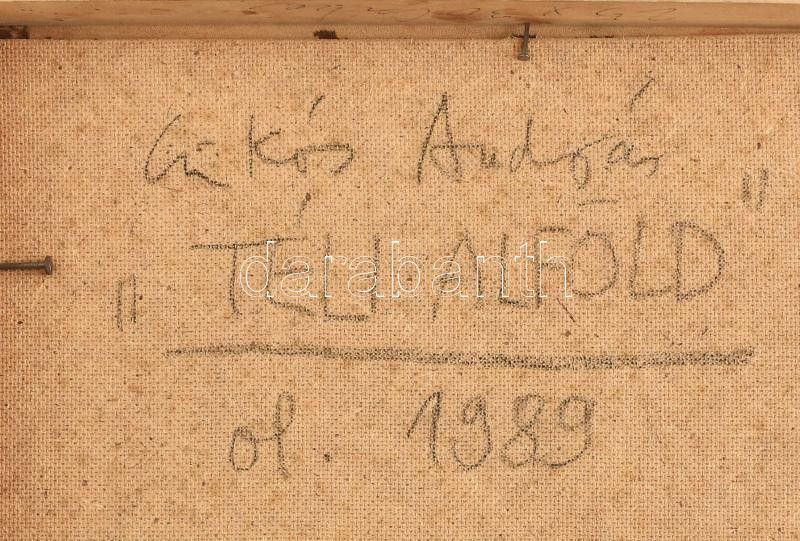 Csikós András
"TÉLI ALFÖLD"
darabanth
ol. 1989